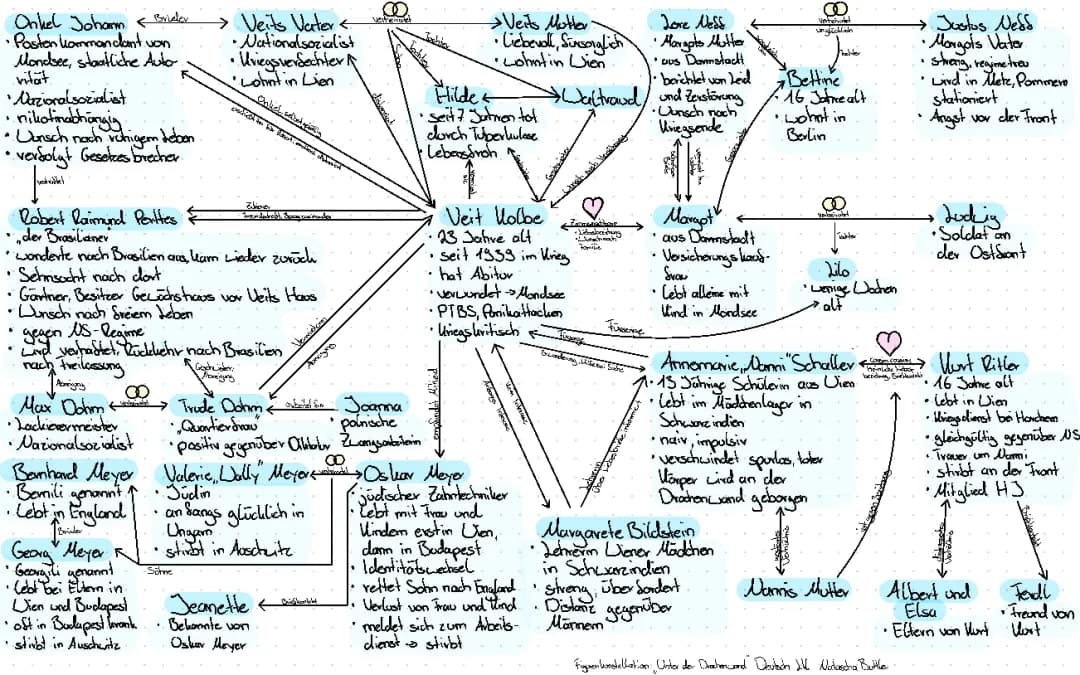 Onkel Johann
• Postenkommandant von
Mondsee, staatliche Auto-
rität
• Nazionalsozialist
• nikotinabhängig
• Wunsch nach ruhigem Leben
• verfolgt Gesetzesbrecher
Brüder
Veits Vater
• Nationalsozialist
• Kriegsverfechter
• wohnt in Wien
verheiratet
Veits Mutter
• Liebevoll, fürsorglich
• wohnt in Wien
Hilde
• seit 7 Jahren tot
durch Tuberkulose
• Lebensfroh
Waltraud
Lore Neff
• Margots Mutter
• aus Darmstadt
• berichtet von Leid
und Zerstörung
• Wunsch nach
Kriegsende
verheiratet
unglücklich
Tochter
Justus Neff
• Margots Vater
• streng, regimetreu
• wird in Metz, Pommern
stationiert
• Angst vor der Front
Bettine
• 16 Jahre alt
• wohnt in
Berlin
verhaftet
Robert Raimund Perttes
• "der Brasilianer
• wanderte nach Brasilien aus, kam wieder zurück
• Sehnsucht nach dort
• Gärtner, Besitzer Gewächshaus vor Veits Haus
• Wunsch nach freiem Leben
• gegen NS-Regime
• wird verhaftet, Rückkehr nach Brasilien
nach Freilassung
Veit Kolbe
• 23 Jahre alt
• seit 1939 im Krieg
• hat Abitur
• verwundet → Mondsee
• PTBS, Panikattacken
• kriegskritisch
Margot
• aus Darmstadt
• Versicherungskauf-
frau
• Lebt alleine mit
Kind in Mondsee
verheiratet
Tochter
Ludwig
• Soldat an
der Ostfront
Lilo
• wenige Wochen
alt
Fürsorge
Fürsorge
Abneigung
Geschwister,
Abneigung
Max Dohm
• Lackierermeister
• Nazionalsozialist
verheiratet
Trude Dohm
• "Quartierfrau"
• positiv gegenüber Diktatur
arbeitet für
Joanna
• polnische
Zwangsarbeiterin
Annemarie "Nanni" Schaller
• 13 Jährige Schülerin aus Wien
• Lebt im Mädchenlager in
Schwarzindien
• naiv, impulsiv
• verschwindet spurlos, toter
Körper wird an der
Drachenwand geborgen
Kurt Ritler
• 16 Jahre alt
• Lebt in Wien
• Kriegsdienst bei Hainburg
• gleichgültig gegenüber NS
• Trauer um Nanni
• stirbt an der Front
• Mitglied HJ
Bernhard Meyer
• Bernili genannt
• Lebt in England
Brüder
Georg Meyer
• Georgili genannt
• Lebt bei Eltern in
Wien und Budapest
• oft in Budapest krank
• stirbt in Auschwitz
Valerie "Wally" Meyer
• Jüdin
• anfangs glücklich in
Ungarn
• stirbt in Auschwitz
Söhne
verheiratet
Oskar Meyer
• jüdischer Zahntechniker
• Lebt mit Frau und
Kindern erst in Wien,
dann in Budapest
• Identitätswechsel
• rettet Sohn nach England
• Verlust von Frau und Kind
• meldet sich zum Arbeits-
dienst → stirbt
Jeanette
• Bekannte von
Oskar Meyer
Margarete Bildstein
• Lehrerin Wiener Mädchen
in Schwarzindien
• streng, überfordert
• Distanz gegenüber
Männern
Nannis Mutter
Albert und
Elsa
• Eltern von Kurt
Ferdl
• Freund von
Kurt
Figurenkonstellation "Unter der Drachenwand" Deutsch LK